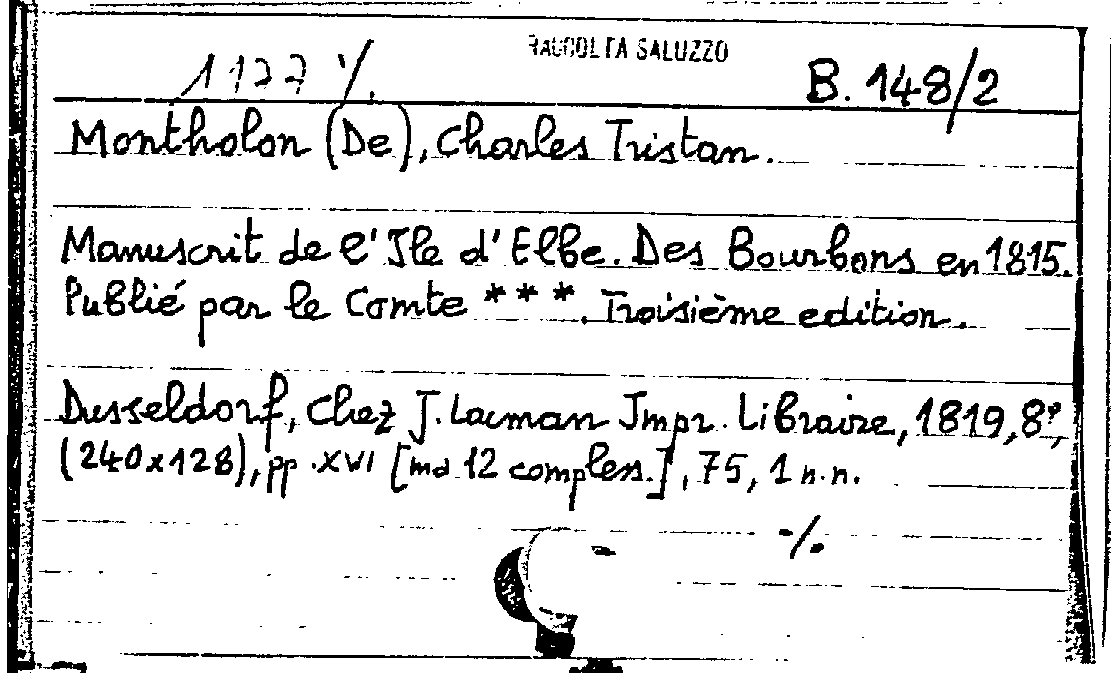 RACCOLTA SALUZZO
1127 ٪.
B. 148/2
Montholon (De), Charles Tristan.
Manuscrit de l'Ile d'Elbe. Des Bourbons en 1815.
Publié par le Comte ***. Troisième edition.
Dusseldorf, Chez J. Lacman Impr. Libraire, 1819, 8°,
(240x128), pp. XVI [ma 12 comples.], 75, 1 n.n.
./.